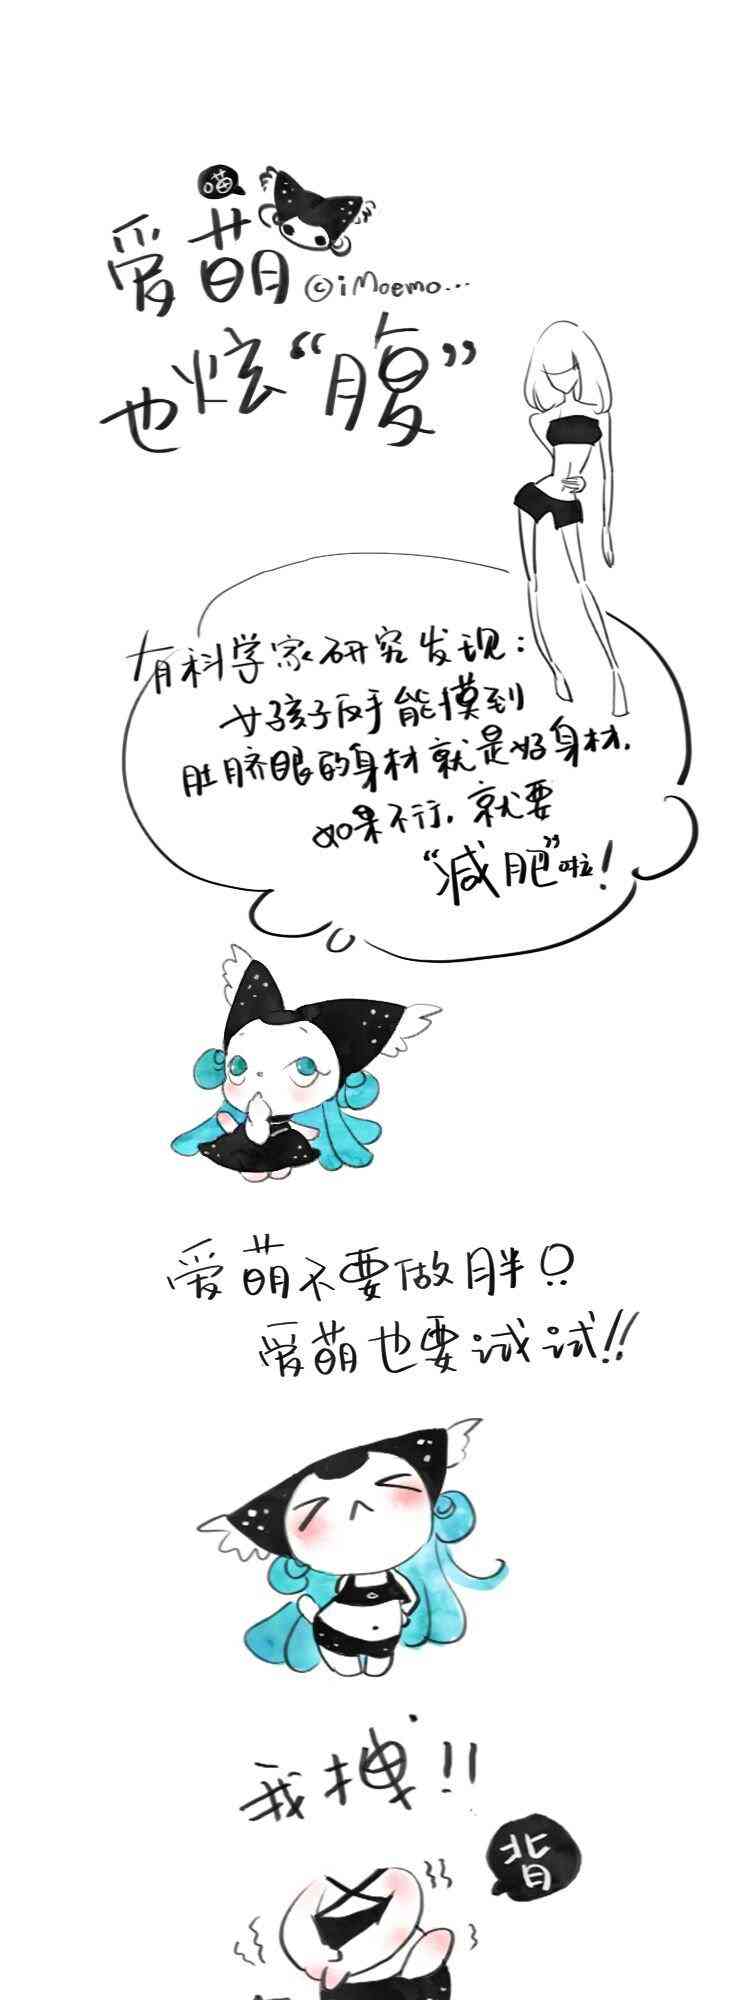 喵
爱萌 ©iMoemo...
也炫“腹”
有科学家研究发现：
女孩子反手能摸到
肚脐眼的身材就是好身材，
如果不行，就要
“减肥”啦！
爱萌不要做胖〇
爱萌也要试试!!
我拽!!
背